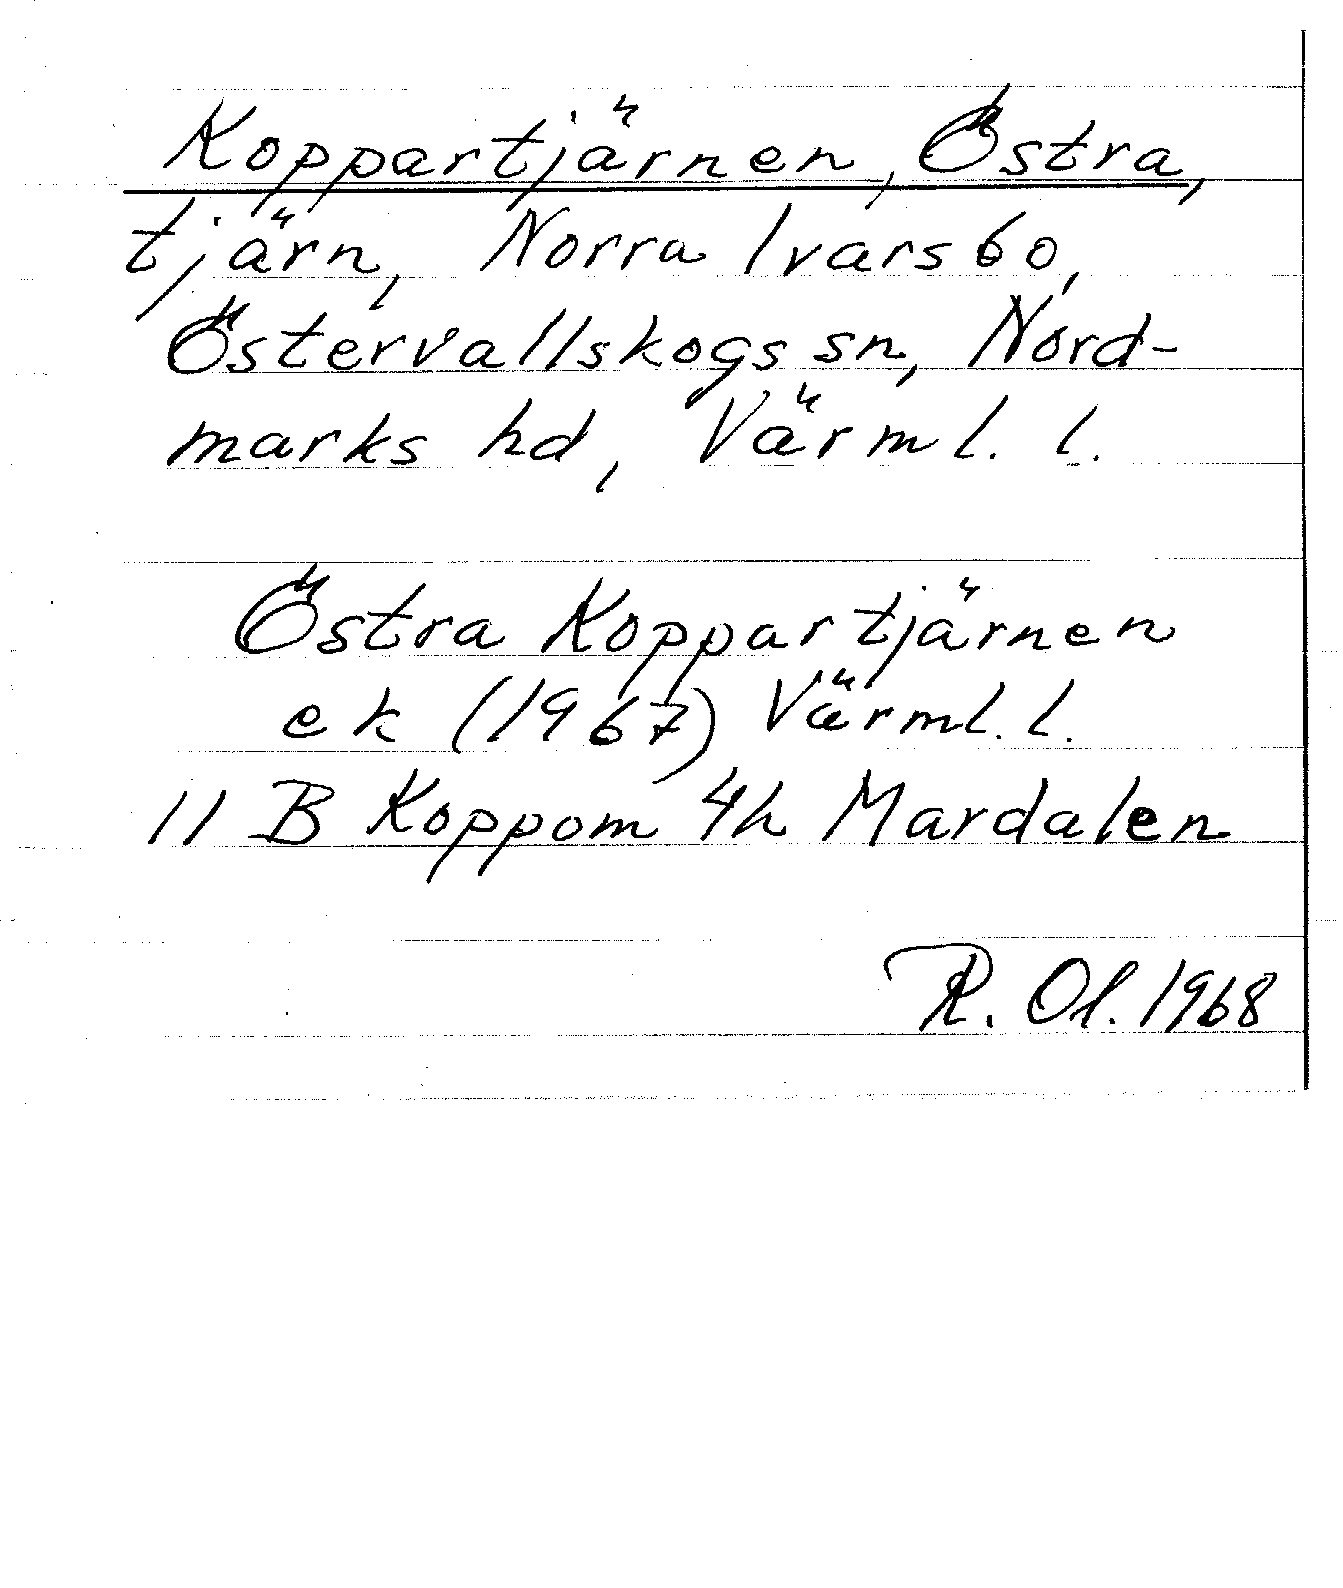 Koppartjärnen, Östra,
tjärn, Norra Ivarsbo,
Östervallskogs sn, Nord-
marks hd, Värml. l.
Östra Koppartjärnen
ek (1967) Värml. l.
11 B Koppom 4h Mardalen
R. Ol. 1968